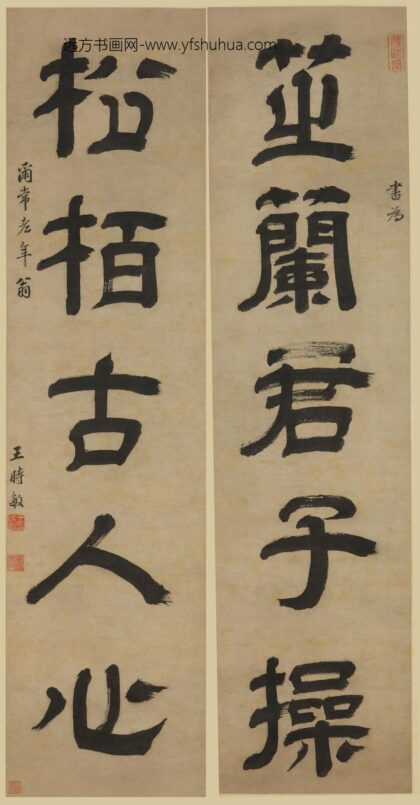 远方书画网-www.yfshuhua.com
書為
芝蘭君子操
松栢古人心
爾常老年翁
王時敏